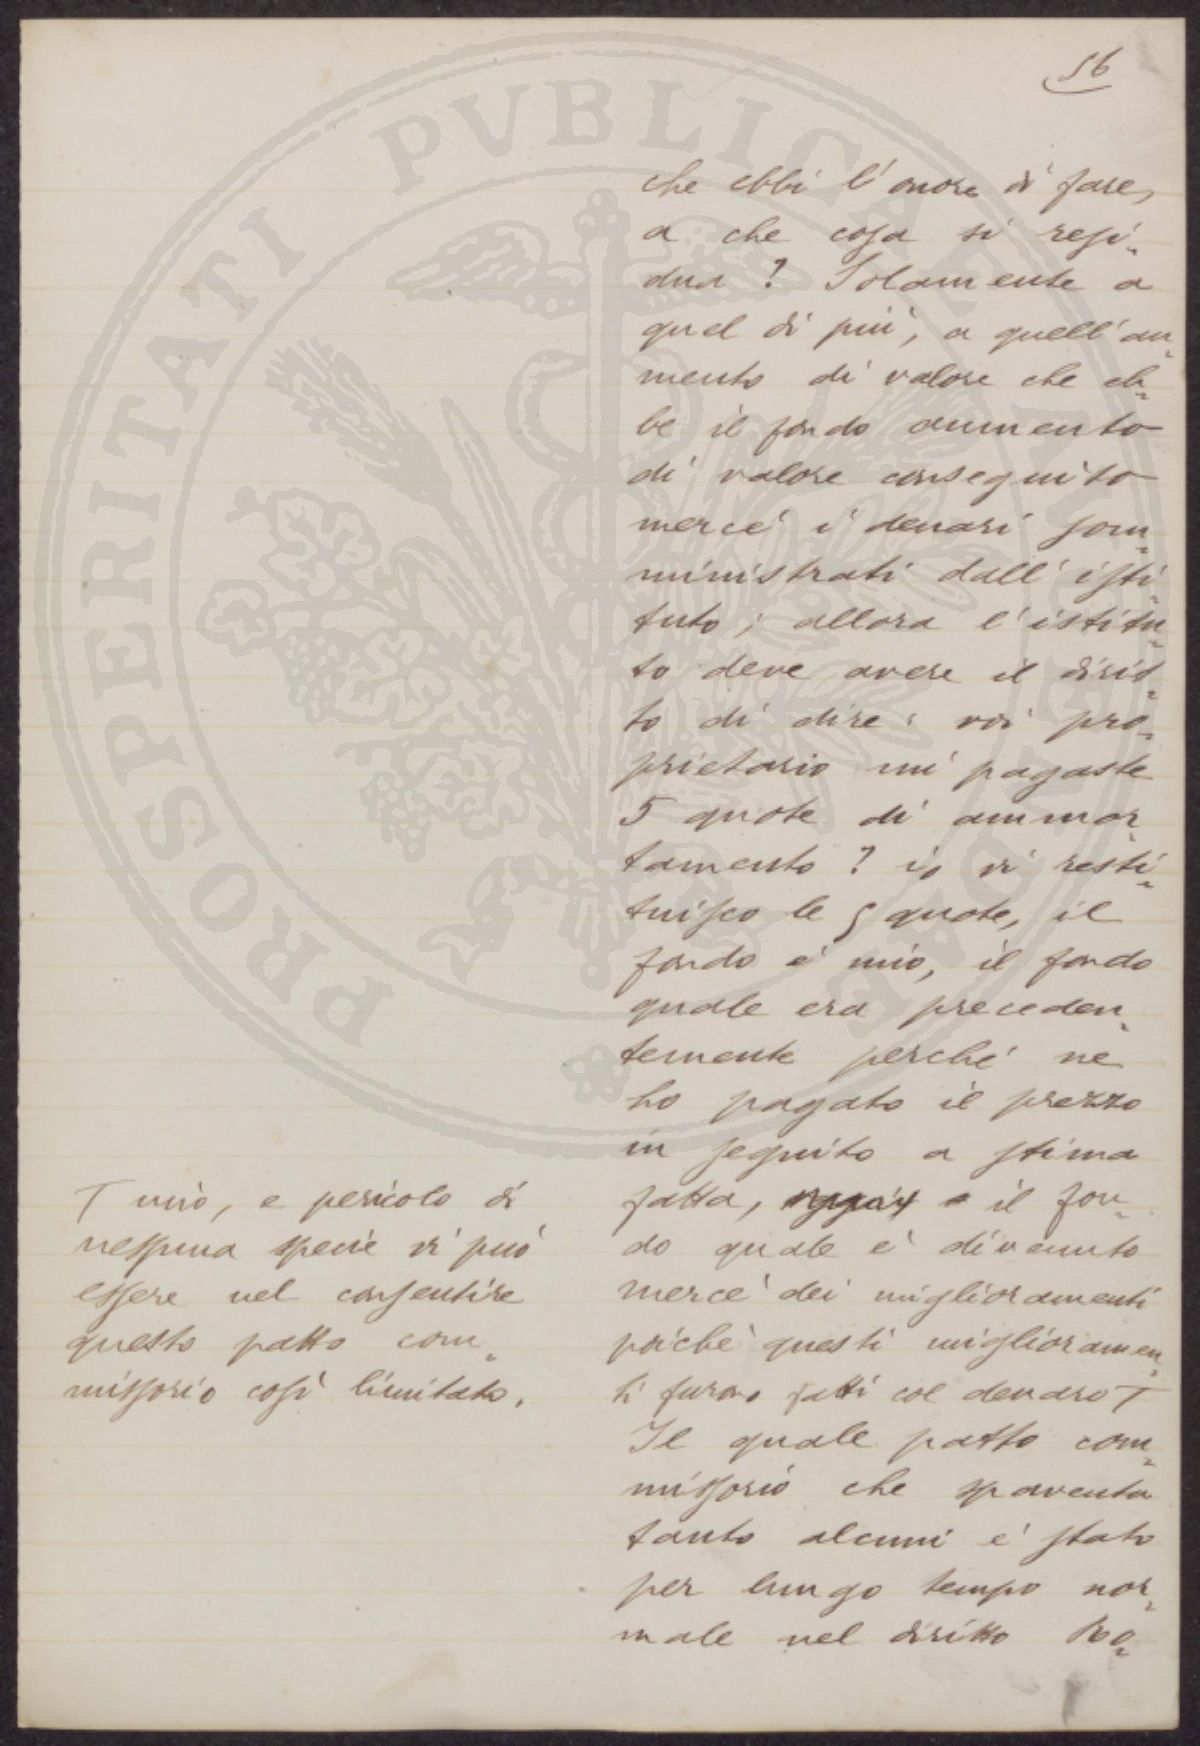 56
che ebbi l'onore di fare,
a che cosa si resi-
dua? Solamente a
quel di più, a quell'au-
mento di valore che eb-
be il fondo aumento
di valore conseguito
mercè i denari som-
ministrati dall'isti-
tuto; allora l'istitu-
to deve avere il dirit-
to di dire: voi pro-
prietario mi pagaste
5 quote di ammor-
tamento? io vi resti-
tuisco le 5 quote, il
fondo è mio, il fondo
quale era preceden-
temente perché ne
ho pagato il prezzo
in seguito a stima
fatta, il fon-
do quale è divenuto
mercè dei miglioramenti
poiché questi miglioramen-
ti furono fatti col denaro T
Il quale patto com-
missorio che spaventa
tanto alcuni è stato
per lungo tempo nor-
male nel diritto Ro-
T mio, e pericolo di
nessuna specie vi può
essere nel consentire
questo patto com-
missorio così limitato.
PROSPERITATI PVBLICAE AVGENDAE